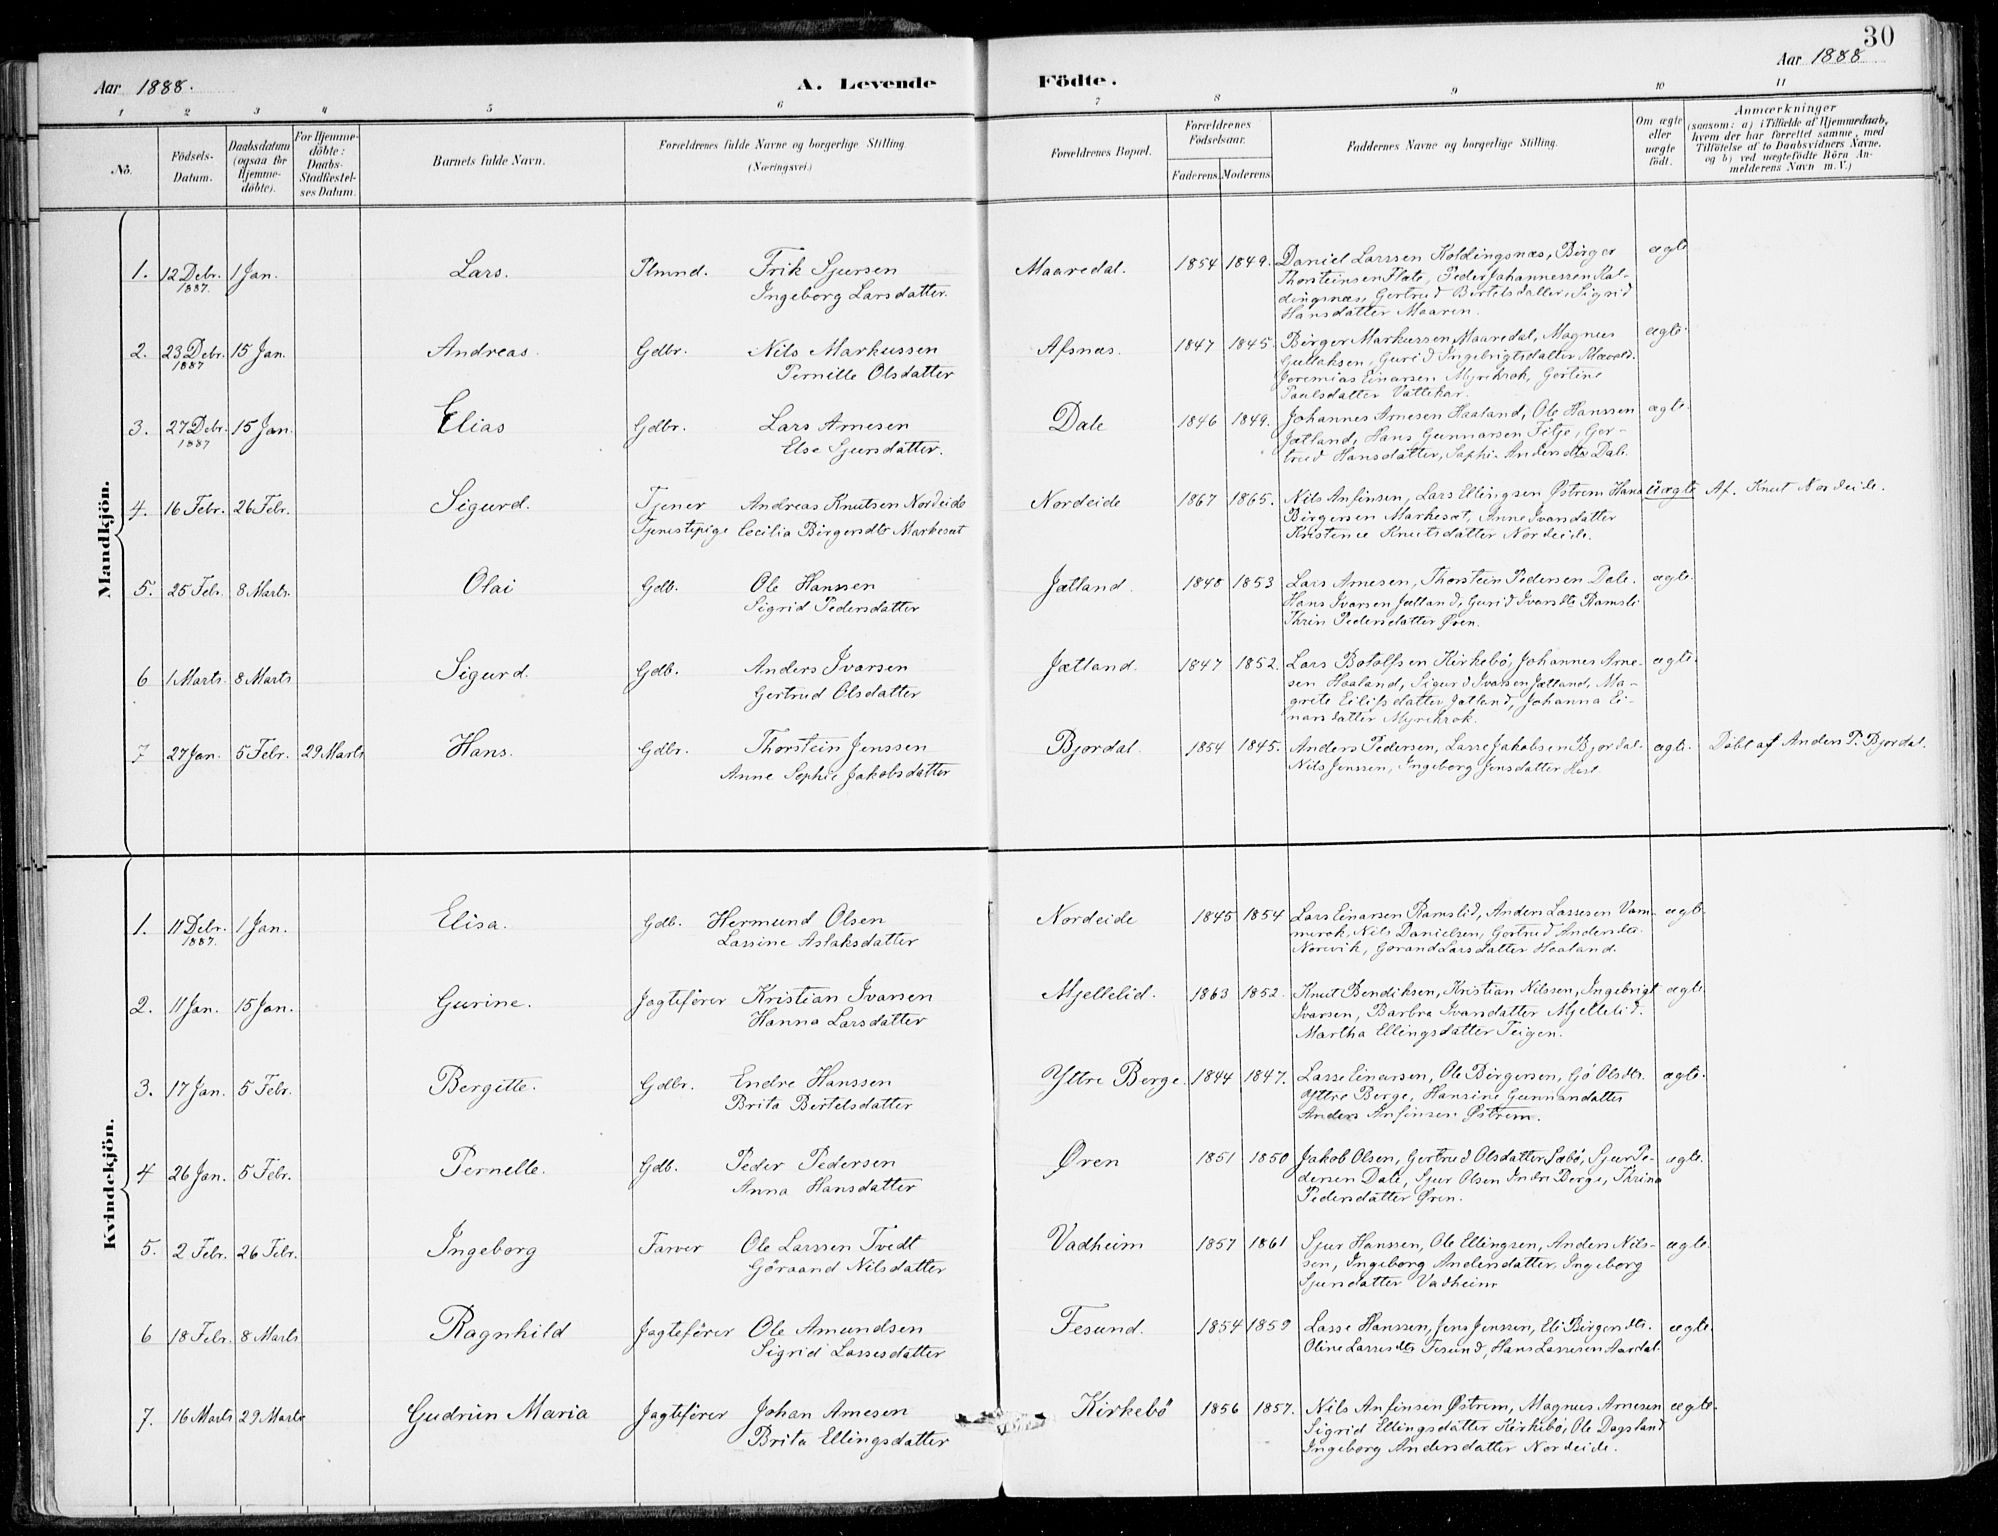 30
Aar 1888. A. Levende Födte. Aar 1888
1 2 3 4 5 6 7 8 9 10 11
No. Födsels-Datum. Daabsdatum (ogsaa for Hjemmedöbte). For Hjemmedöbte: Daabs-Stadfestelses Datum. Barnets fulde Navn. Forældrenes fulde Navne og borgerlige Stilling. (Næringsvei.) Forældrenes Bopæl. Forældrenes Födselsaar. Faderens. Moderens. Faddernes Navne og borgerlige Stilling. Om ægte eller uægte födt. Anmærkninger (saasom: a) i Tilfælde af Hjemmedaab, hvem der har forrettet samme, med Tilföielse af to Daabsvidners Navne. og b) ved uægtefödte Börn Anmelderens Navn m. V.)
Mandkjön.
1. 12 Debr. 1887. 1 Jan. Lars. Plmnd. Erik Sjursen Maaredal. 1854 1849. Daniel Larssen Koldingsnæs, Börger ægte
Ingeborg Larsdatter. Thorsteinsen Flate, Peder Johannessen Kol-
dingsnæs, Gertrud Bertelsdatter, Sigrid
Hansdatter Maaren.
2. 23 Debr. 1887 15 Jan. Andreas. Gdbr. Nils Markussen Afsnæs. 1847 1845. Börger Markussen Maaredal, Magnus ægte.
Pernille Olsdatter Gullaksen, Gurid Ingebrigtsdatter
Jeremias Einarsen Myrekrok, Gertine
Paulsdatter Vattekar.
3. 27 Debr. 1887 15 Jan. Elias Gdbr. Lars Arnesen Dale 1846 1849. Johannes Arnesen Haaland, Ole Hanssen ægte.
Else Sjursdatter. Jætland, Hans Gunnarsen Fitje, Ger-
trud Hansdatter, Sophie Andersdtr Dale.
4. 16 Febr. 26 Febr. Sigurd. Tjener Andreas Knutsen Nordeide Nordeide 1867 1865. Nils Anfinsen, Lars Ellingsen Østrem Hans Uægte Af. Knut Nordeide.
Tjenestepige Cecilia Börgersdtr Markeset Börgersen Markeset, Anne Ivarsdatter
Kristense Knutsdatter Nordeide.
5. 25 Febr. 8 Marts. Olai Gdb. Ole Hanssen Jætland. 1848 1853 Lars Arnesen, Thorstein Pedersen Dale. ægte.
Sigrid Pedersdatter Hans Ivarsen Jætland, Gurid Ivarsdtr Ramsli
Thrin Pedersdatter Øren.
6 1 Marts. 8 Marts Sigurd. Gdb. Anders Ivarsen Jætland. 1847 1852. Lars Botolfsen Kirkebö, Johannes Arne- ægte.
Gertrud Olsdatter sen Haaland, Sigurd Ivarsen Jætland, Ma-
grete Eilifsdatter Jætland, Johanna Ei-
narsdatter Myrekrok.
7 27 Jan. 5 Febr. 29 Marts Hans. Gdbr. Thorstein Jenssen Bjordal. 1854 1845. Anders Pedersen, Lasse Jakobsen Bjordal. ægte. Döbt af Anders P. Bjordal.
Anne Sophie Jakobsdatter Nils Jenssen, Ingeborg Jensdatter
Kvindekjön.
1. 11 Debr. 1887. 1 Jan. Elisa. Gdb. Hermund Olsen Nordeide 1845 1854 Lars Einarsen Ramslid, Anders Lassesen Vam- ægte.
Lassine Aslaksdatter merok Nils Danielsen, Gertrud Andersdtr.
Norevik, Gorand Larsdatter Haaland.
2. 11 Jan. 15 Jan. Gurine. Jagtefører Kristian Ivarsen Mjellelid. 1863 1852. Knut Bendiksen, Kristian Nilssen, Ingebrigt ægte.
Hanna Larsdatter Ivarsen, Barbra Ivarsdatter Mjellelid.
Martha Ellingsdatter Teigen.
3. 17 Jan. 5 Febr. Bergitte. Gdbr. Endre Hanssen Yttre Berge. 1844 1847. Lasse Einarsen, Ole Börgersen, Gö Olsdtr. ægte.
Brita Bertelsdatter Yttre Berge, Hansine Gunnarsdatter
Anders Anfinsen Østrem.
4 26 Jan. 5 Febr. Pernelle. Gdb. Peder Pedersen Øren 1851 1850 Jakob Olsen, Gertrud Olsdatter Sæbö, Sjur Pe- ægte.
Anna Hansdatter dersen Dale, Sjur Olsen Indre Berge, Thrina
Pedersdatter Øren.
5. 2 Febr. 26 Febr. Ingeborg Farver Ole Larssen Tvedt Vadheim 1857 1861 Sjur Hanssen, Ole Ellingsen, Anders Nils- ægte.
Göraand Nilsdatter sen, Ingeborg Andersdatter, Ingeborg
Sjursdatter Vadheim
6 18 Febr. 8 Marts Ragnhild Jagtefører Ole Amundsen Fesund. 1854 1859 Lasse Hanssen, Jens Jenssen, Eli Börgersdtr. ægte.
Sigrid Lassesdatter Oline Lassesdtr Fesund, Hans Lassesen Aardal.
7. 16 Marts 29 Marts Gudrun Maria Jagtefører Johan Arnesen Kirkebö 1856 1857. Nils Anfinsen Østrem, Magnus Arnesen ægte.
Brita Ellingsdatter Sigrid Ellingsdatter Kirkebö, Ole Dagsland
Ingeborg Andersdatter Nordeide.